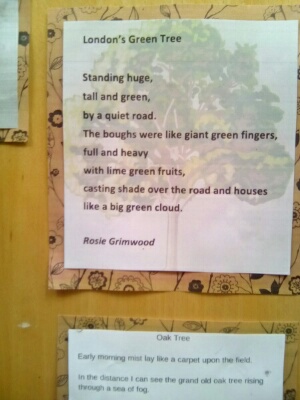 London's Green Tree
Standing huge,
tall and green,
by a quiet road.
The boughs were like giant green fingers,
full and heavy
with lime green fruits,
casting shade over the road and houses
like a big green cloud.
Rosie Grimwood
Oak Tree
Early morning mist lay like a carpet upon the field.
In the distance I can see the grand old oak tree rising
through a sea of fog.